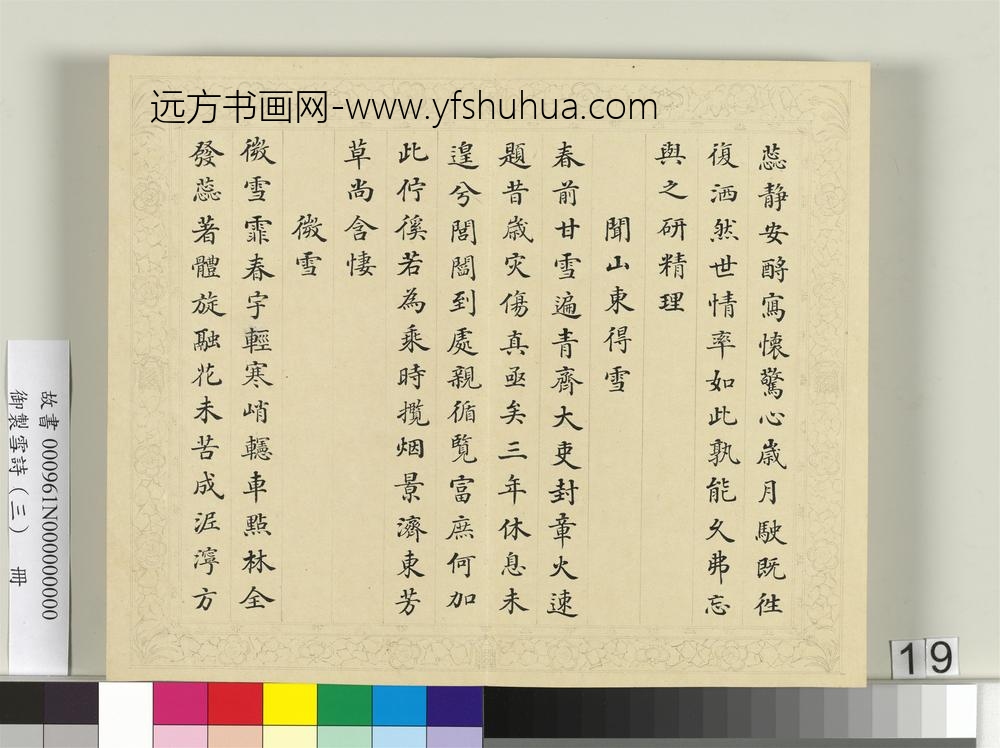 远方书画网-www.yfshuhua.com
蕊静安酹寫懷驚心歳月駛既徃
復洒然世情率如此孰能久弗忘
與之研精理
聞山東得雪
春前甘雪遍青齊大吏封章火速
題昔歳灾傷真亟矣三年休息未
遑兮閭閻到處親循覧富庶何加
此佇徯若為乘時攬烟景濟東芳
草尚含悽
微雪
微雪霏春宇輕寒峭轣車點林全
發蕊著體旋融花未苦成泥濘方
故書 000961N000000000
御製雪詩(三) 冊
19